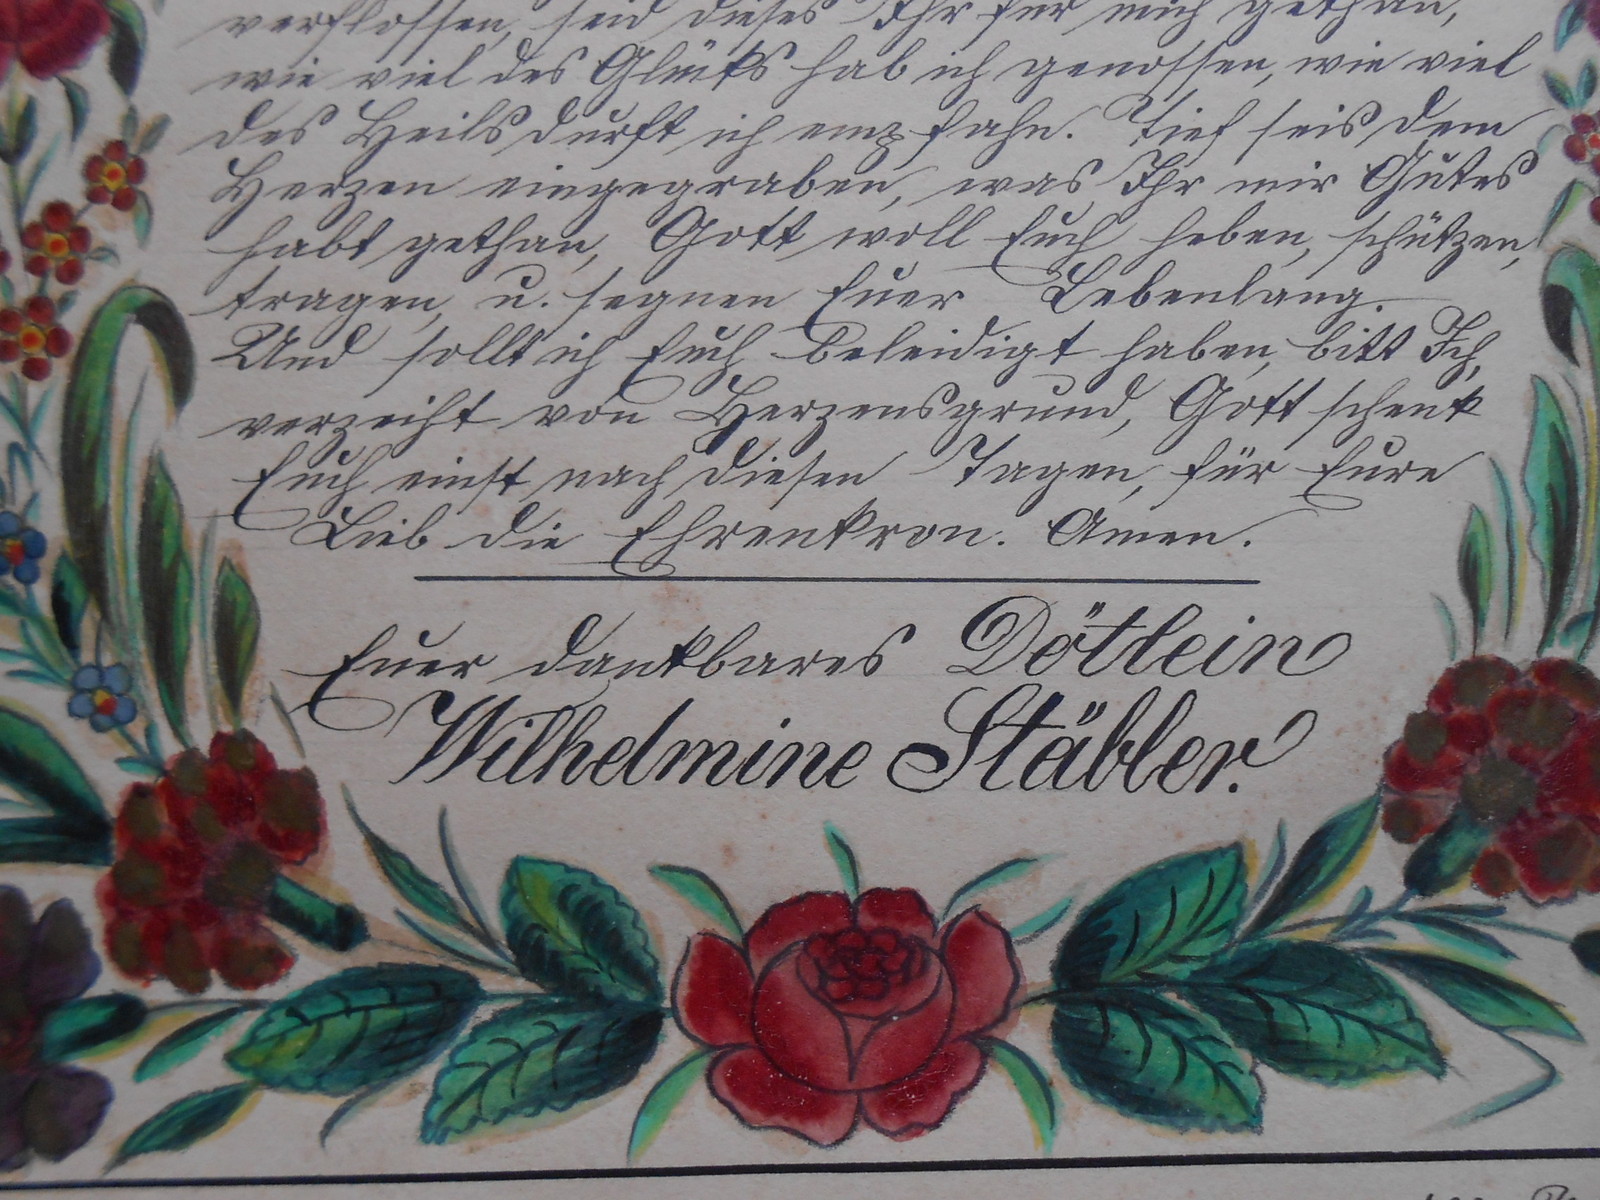 verflossen, seid dieses Ihr für mich gethan,
wie viel des Glüks hab ich genossen, wie viel
des Heils durft ich empfahn. Tief seis dem
Herzen eingegraben, was Ihr mir Gutes
habt gethan, Gott woll Euch heben, schützen,
tragen, u. segnen Euer Lebenlang.
Und sollt ich Euch beleidigt haben, bitt Ich,
verzeiht von Herzensgrund, Gott schenk
Euch einst nach diesen Tagen, für Eure
Lieb die Ehrenkron. Amen.
Euer dankbares Dötlein
Wilhelmine Stäbler.